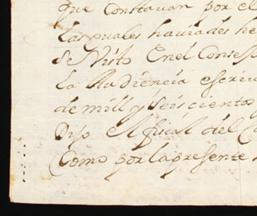 que Constauan por el
las quales hauiades he
se Visto En el Consejo
la Audiencia escriu
de mill y seiscientos
Dijo el fiscal del C
Como por la presente